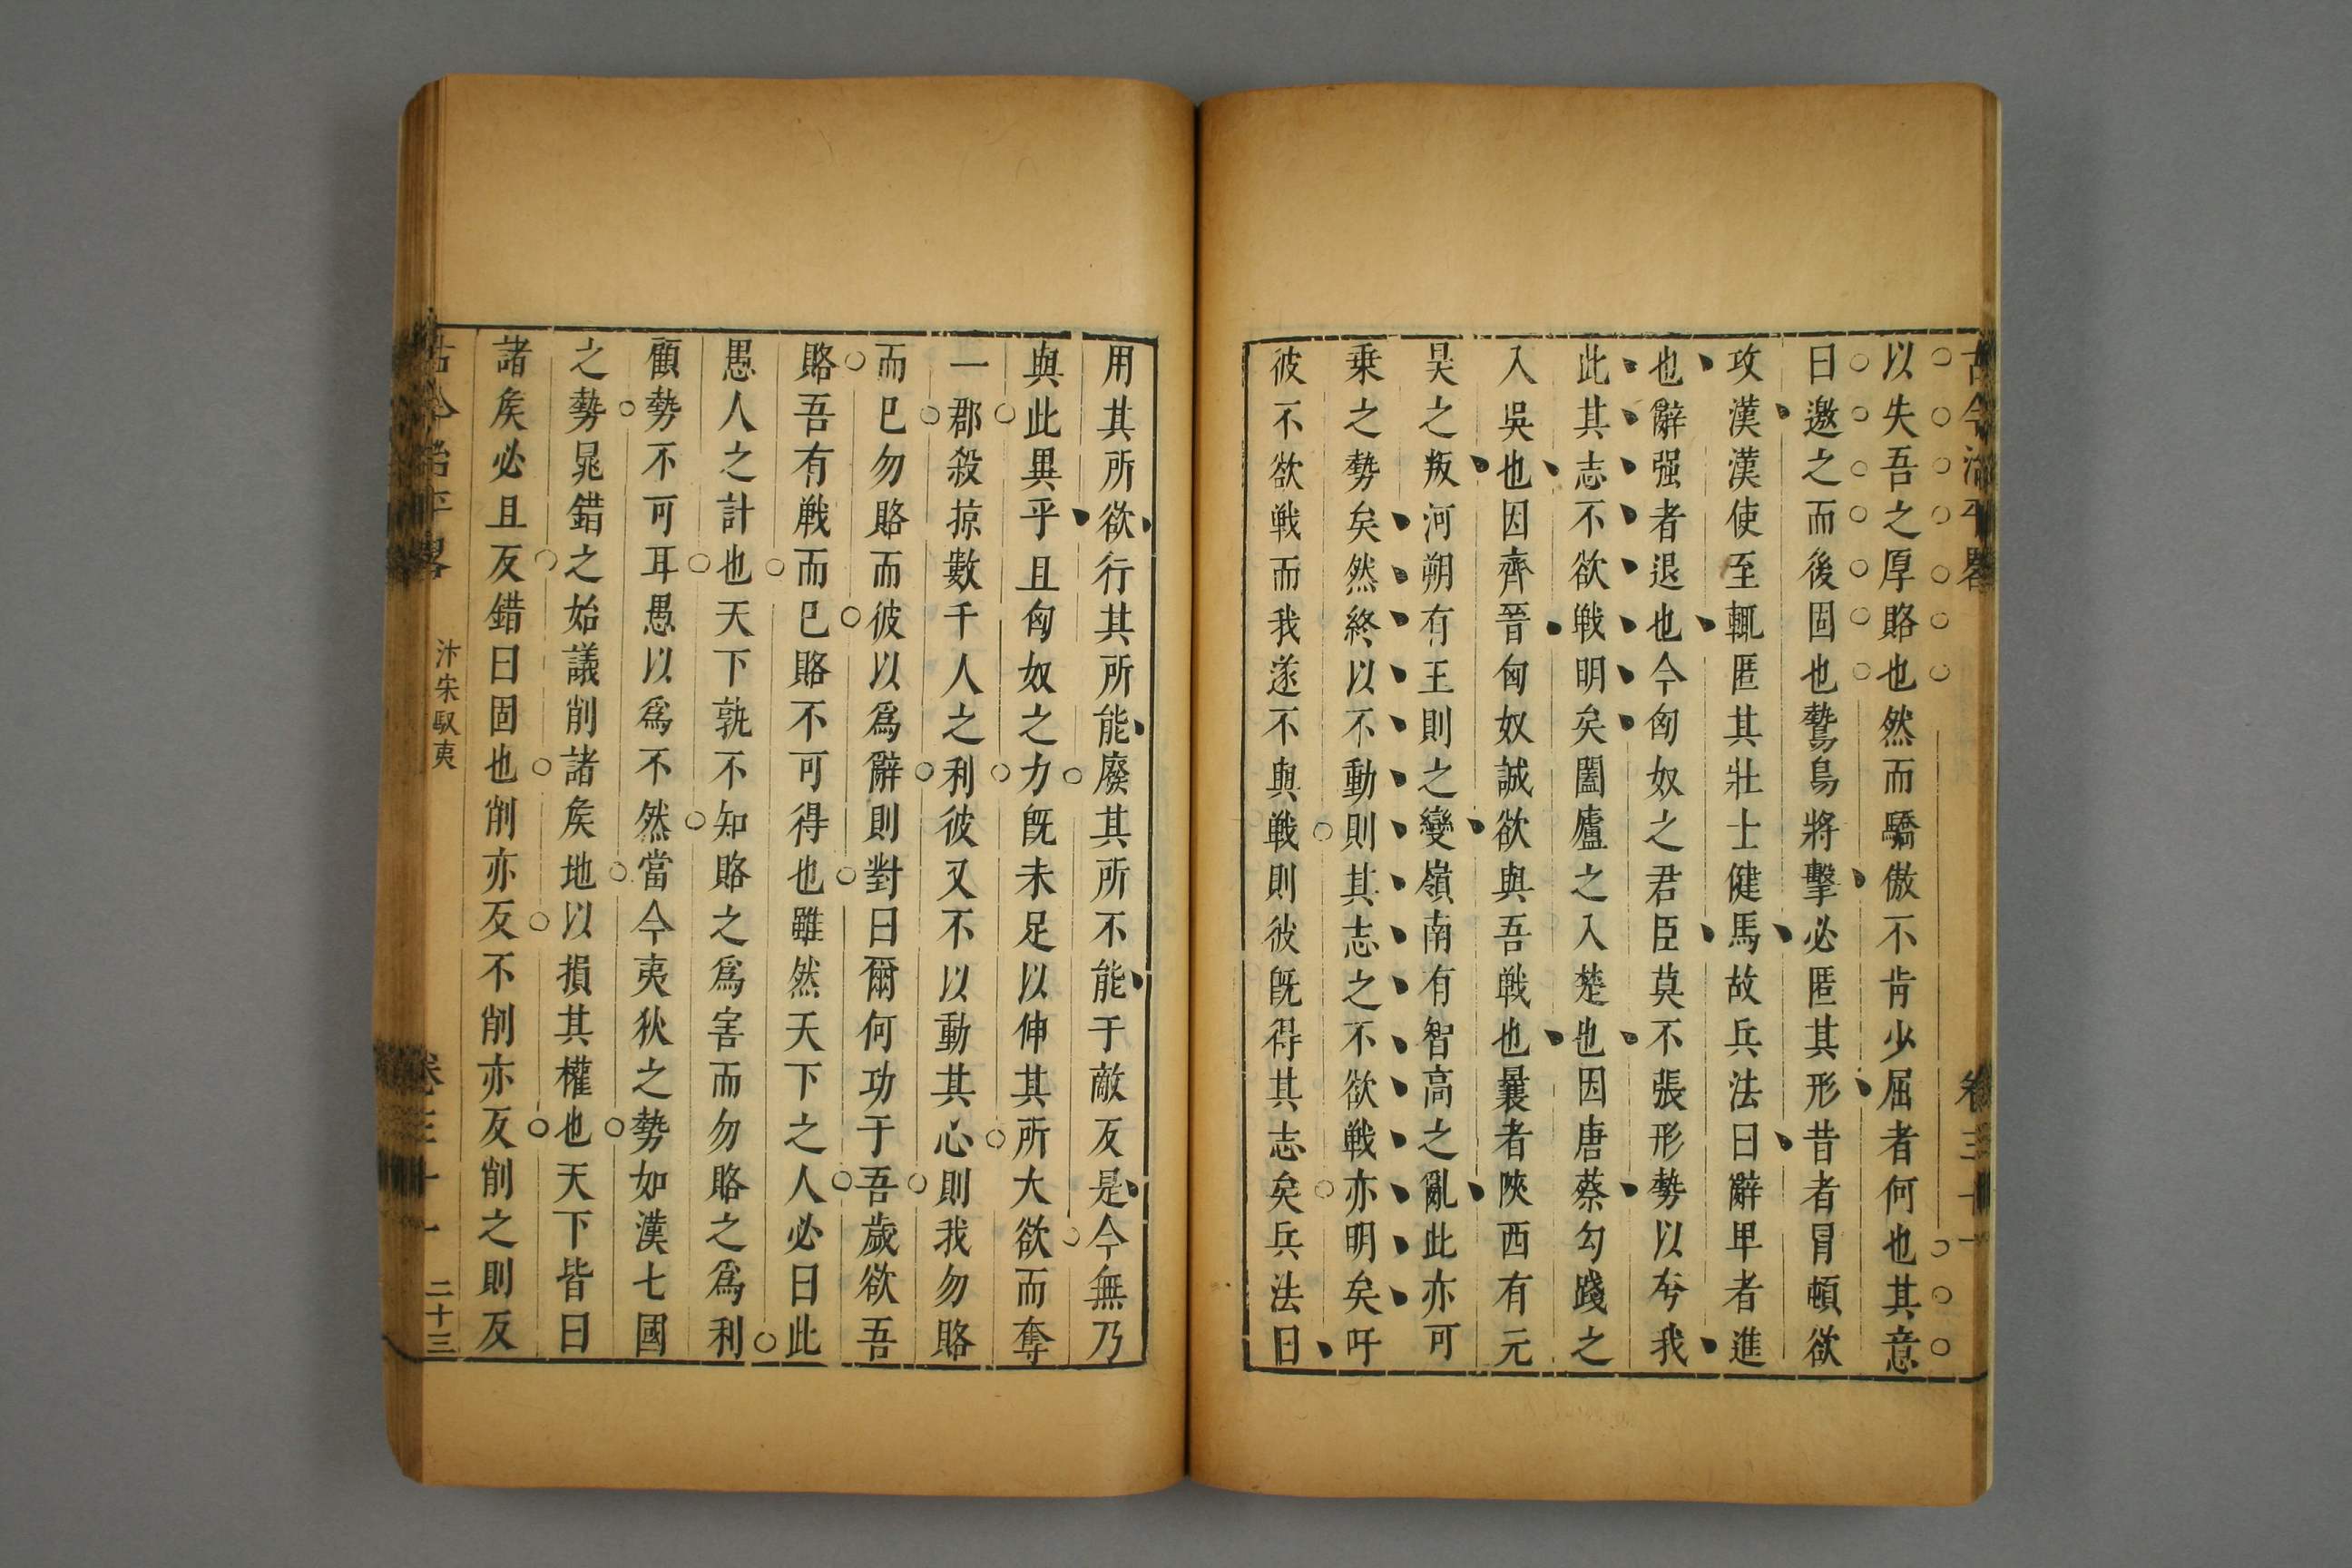 古今治平畧 卷三十一
以失吾之厚賂也然而驕傲不肯少屈者何也其意
曰邀之而後固也鷙鳥將擊必匿其形昔者冒頓欲
攻漢漢使至輒匿其壯士健馬故兵法曰辭卑者進
也辭强者退也今匈奴之君臣莫不張形勢以夸我
此其志不欲戦明矣闔廬之入楚也因唐蔡勾踐之
入吳也因齊晉匈奴誠欲與吾戦也曩者陜西有元
昊之叛河朔有王則之變嶺南有智高之亂此亦可
乗之勢矣然終以不動則其志之不欲戦亦明矣吁
彼不欲戦而我遂不與戦則彼旣得其志矣兵法曰
用其所欲行其所能廢其所不能于敵反是今無乃
與此異乎且匈奴之力旣未足以伸其所大欲而奪
一郡殺掠數千人之利彼又不以動其心則我勿賂
而已勿賂而彼以爲辭則對曰爾何功于吾歲欲吾
賂吾有戦而已賂不可得也雖然天下之人必曰此
愚人之計也天下孰不知賂之爲害而勿賂之爲利
顧勢不可耳愚以爲不然當今夷狄之勢如漢七國
之勢晁錯之始議削諸矦地以損其權也天下皆曰
諸矦必且反錯曰固也削亦反不削亦反削之則反
古今治平畧 汴宋馭夷 卷三十一 二十三